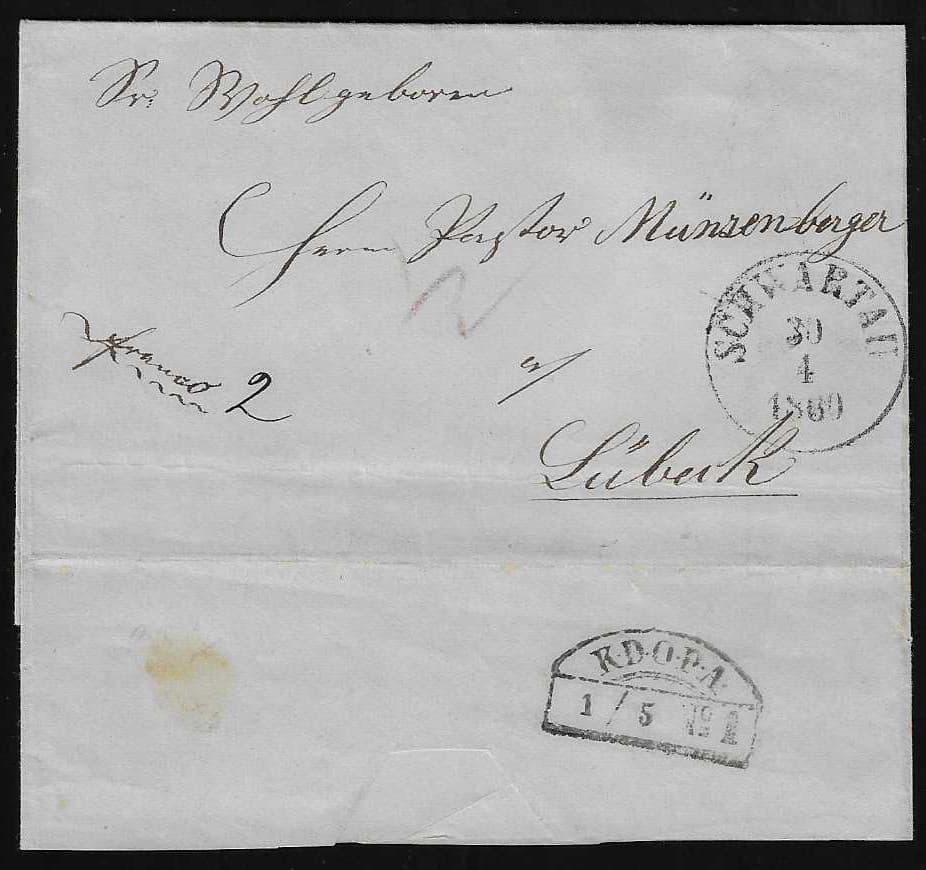 Sr: Wohlgeboren
Herrn Pastor Münzenberger
franco 2
a/
Lübeck
SCHWARTAU
30
4
1860
K.D.O.P.A.
1 / 5 No 1